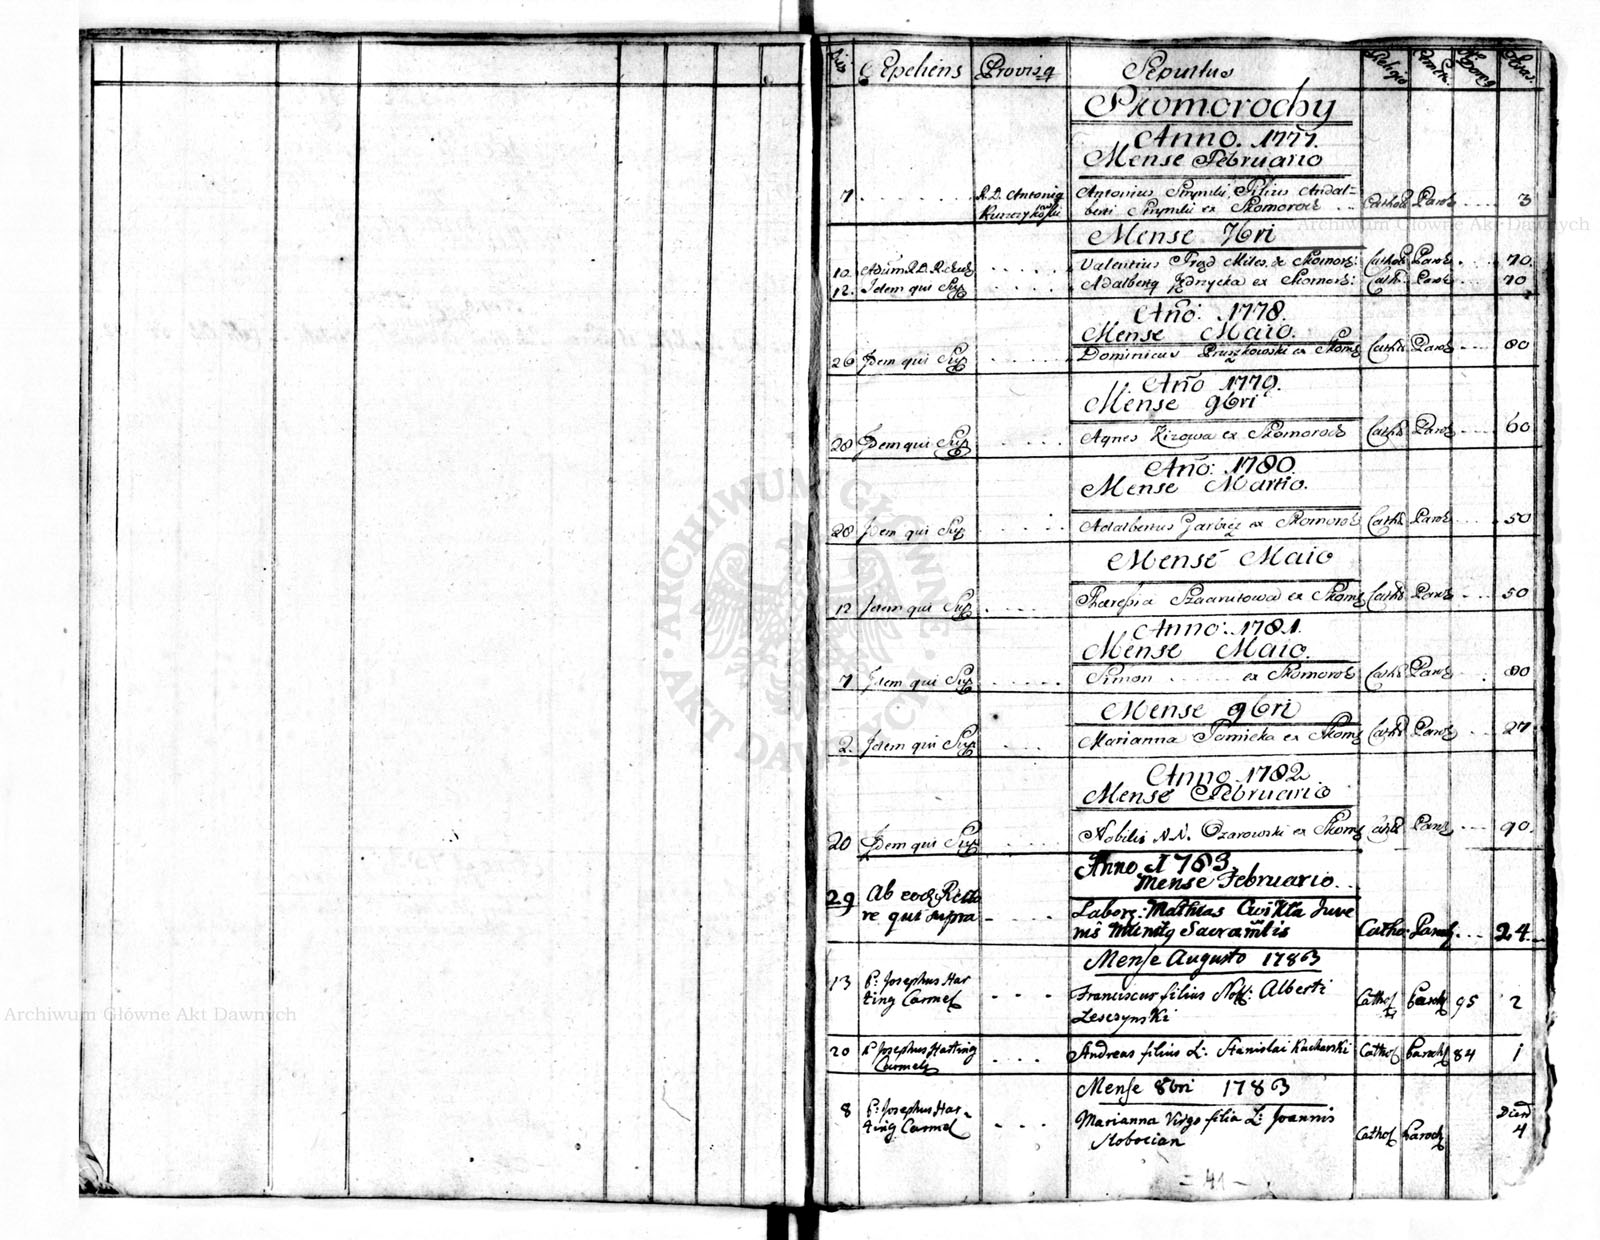 Dies Expeliens Provisq Sepultus Religio
Skomorochy
Anno. 1777.
Mense Februario
7 R. D. Antoniq Antonius Filius Adal=
berti ex Skomoroch Cathol Paroh 3
Mense 7bri
10 R. D. Valentius Miles ex Skomoroh: Cathol Paroh 70.
12. Idem qui Sup Adalbertq ex Skomoroh: Cath. Paroh 70
Año: 1778.
Mense Maio.
26 Idem qui Sup Dominicus Pruszkowski ex Skomq Cathol Paroh 80
Año 1779.
Mense 9bri
28 Idem qui Sup Agnes Zizowa ex Skomoroch Cathol Paroh 60
Año: 1780.
Mense Martio.
28 Idem qui Sup Adalbertus ex Skomoroh Cathol Paroh 50
Mense Maio
12 Idem qui Sup ex Skomq Cathol Paroh 50
Anno: 1781.
Mense Maio.
7 Idem qui Sup Simon ex Skomoroh Cathol Paroh 80
Mense 9bri
2. Idem qui Sup Marianna Tomicka ex Skomq Cathol Paroh 27
Anno 1782.
Mense Februario
20 Idem qui Sup Nobilis N. N. Ozarowski ex Skomq Cathol Paroh 90.
Anno 1783.
Mense Februario
29 Ab eod: Recto
re qui supra Laborq: Mathias Cwikła Juve
nis Munitq Sacramtis Catho: Paroh 24
Mense Augusto 1783
13 P: Josephus Har
ting Carmel Franciscus filius Nob: Alberti
Lesczynski Cathol Paroch 95 2
20 P Josephus Harting
Carmel Andreas filius L: Stanislai Kucharski Cathol Paroch 84 1
Mense 8bri 1783
8 P: Josephus Har-
ting Carmel Marianna Virgo filia L: Joannis
Słobocian Cathol Paroch Dierū
4
= 41 -
Archiwum Główne Akt Dawnych
Archiwum Główne Akt Dawnych
ARCHIWUM GŁÓWNE AKT DAWNYCH